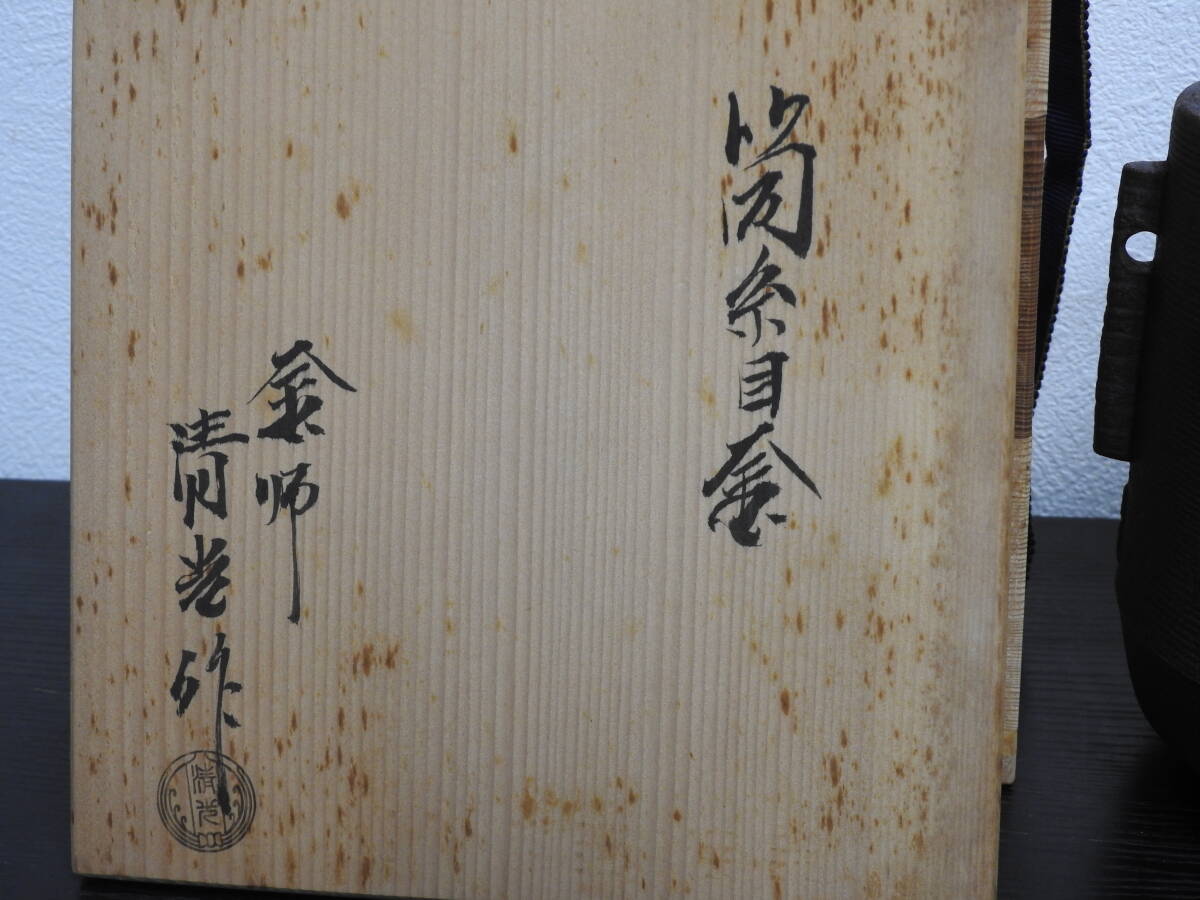 筒糸目釜
釜師
清光作
清光